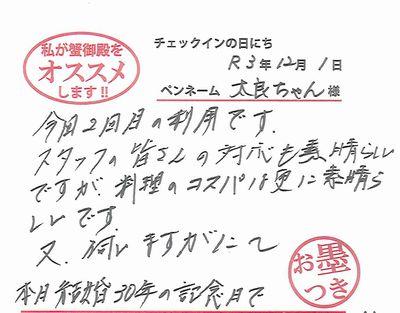 私が蟹御殿を
オススメ
します!!
チェックインの日にち
R3年12月1日
ペンネーム 太良ちゃん 様
今回2回目の利用です.
スタッフの皆さんの対応も素晴らしい
ですが、料理のコスパは更に素晴ら
しいです.
又、伺いますがにて
本月結婚30年の記念月で
お墨つき